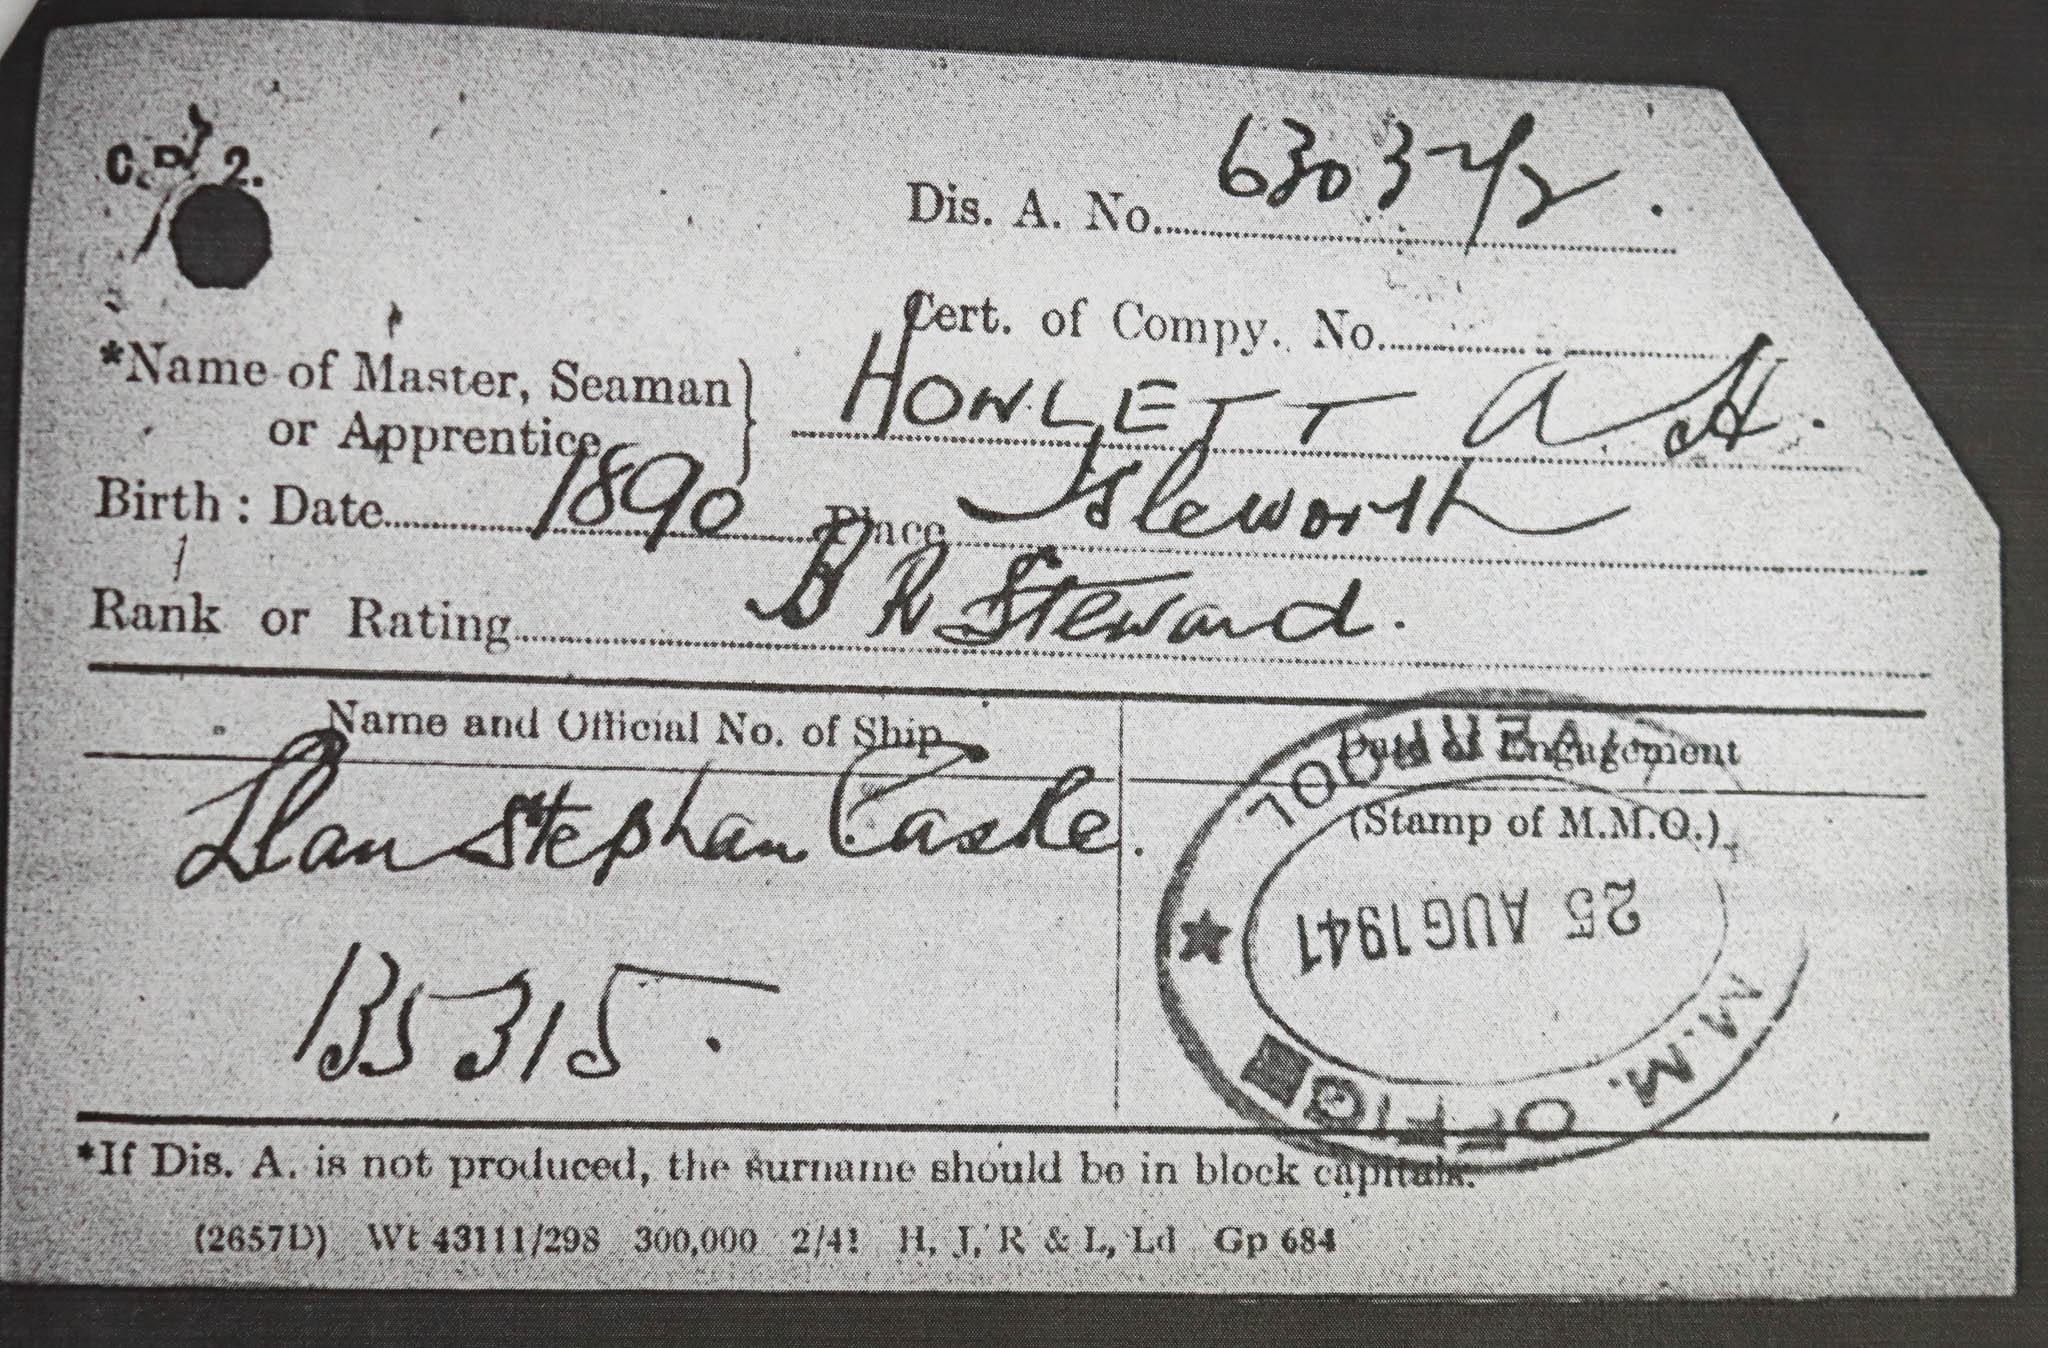 C.R. 2.
Dis. A. No. 63037/2.
Cert. of Compy. No.
*Name of Master, Seaman or Apprentice} HOWLETT A H.
Birth : Date 1890 Place Isleworth
Rank or Rating B R Steward.
Name and Official No. of Ship
Date of Engagement
(Stamp of M.M.O.)
Llanstephan Castle.
135315.
LIVERPOOL
25 AUG 1941
M.M. OFFICE
*If Dis. A. is not produced, the surname should be in block capitals.
(2657D) Wt 43111/298 300,000 2/41 H, J, R & L, Ld Gp 684